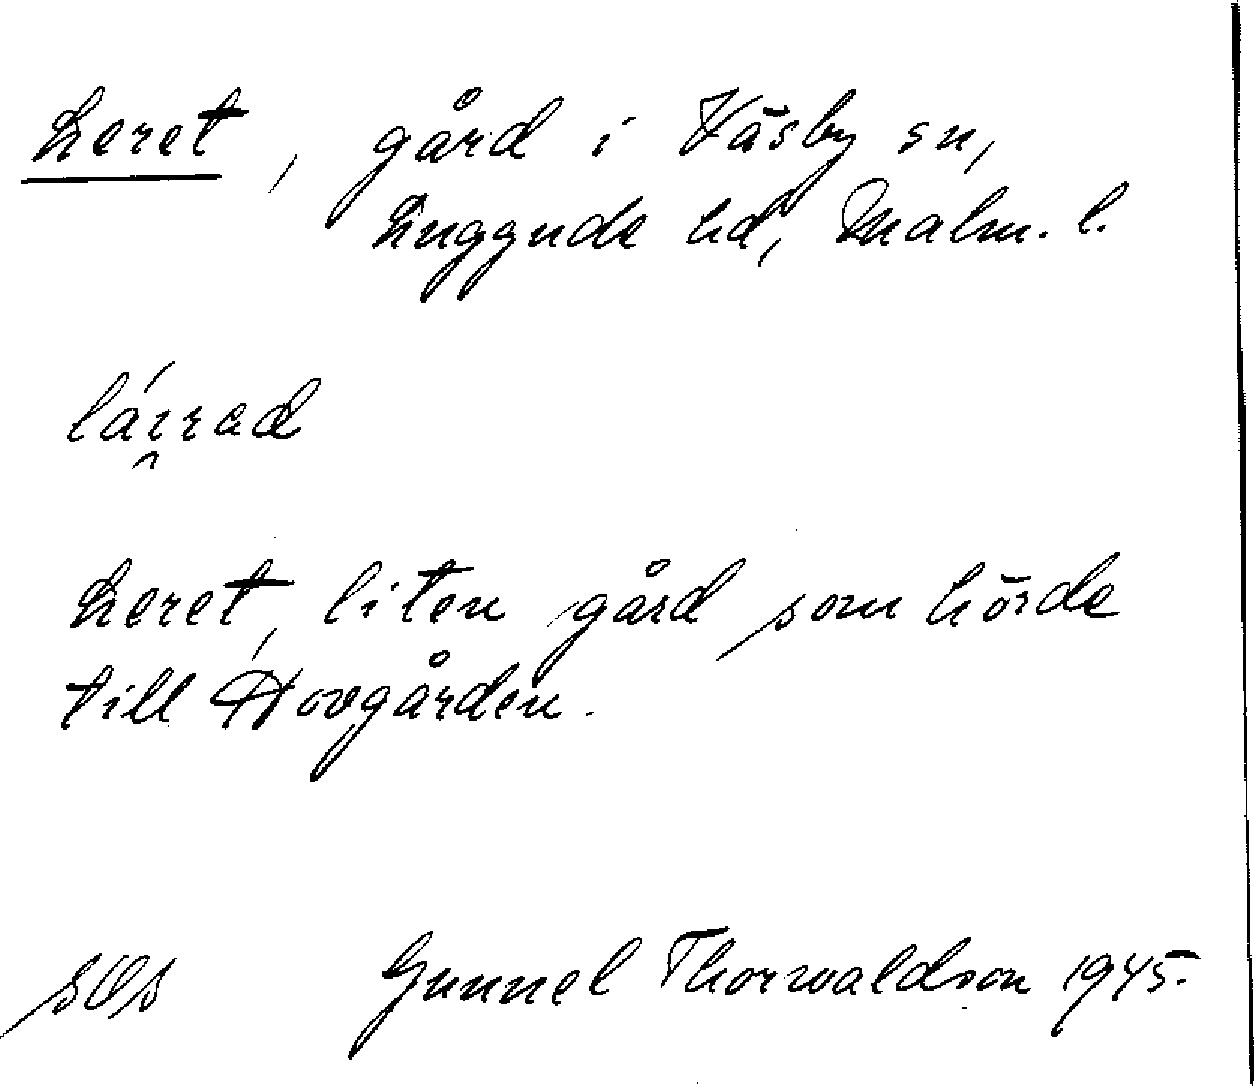 Leret, gård i Väsby sn,
Luggude hd, Malm. l.
Leret, liten gård som hörde
till Hovgården.
Gunnel Thorwaldson 1945.